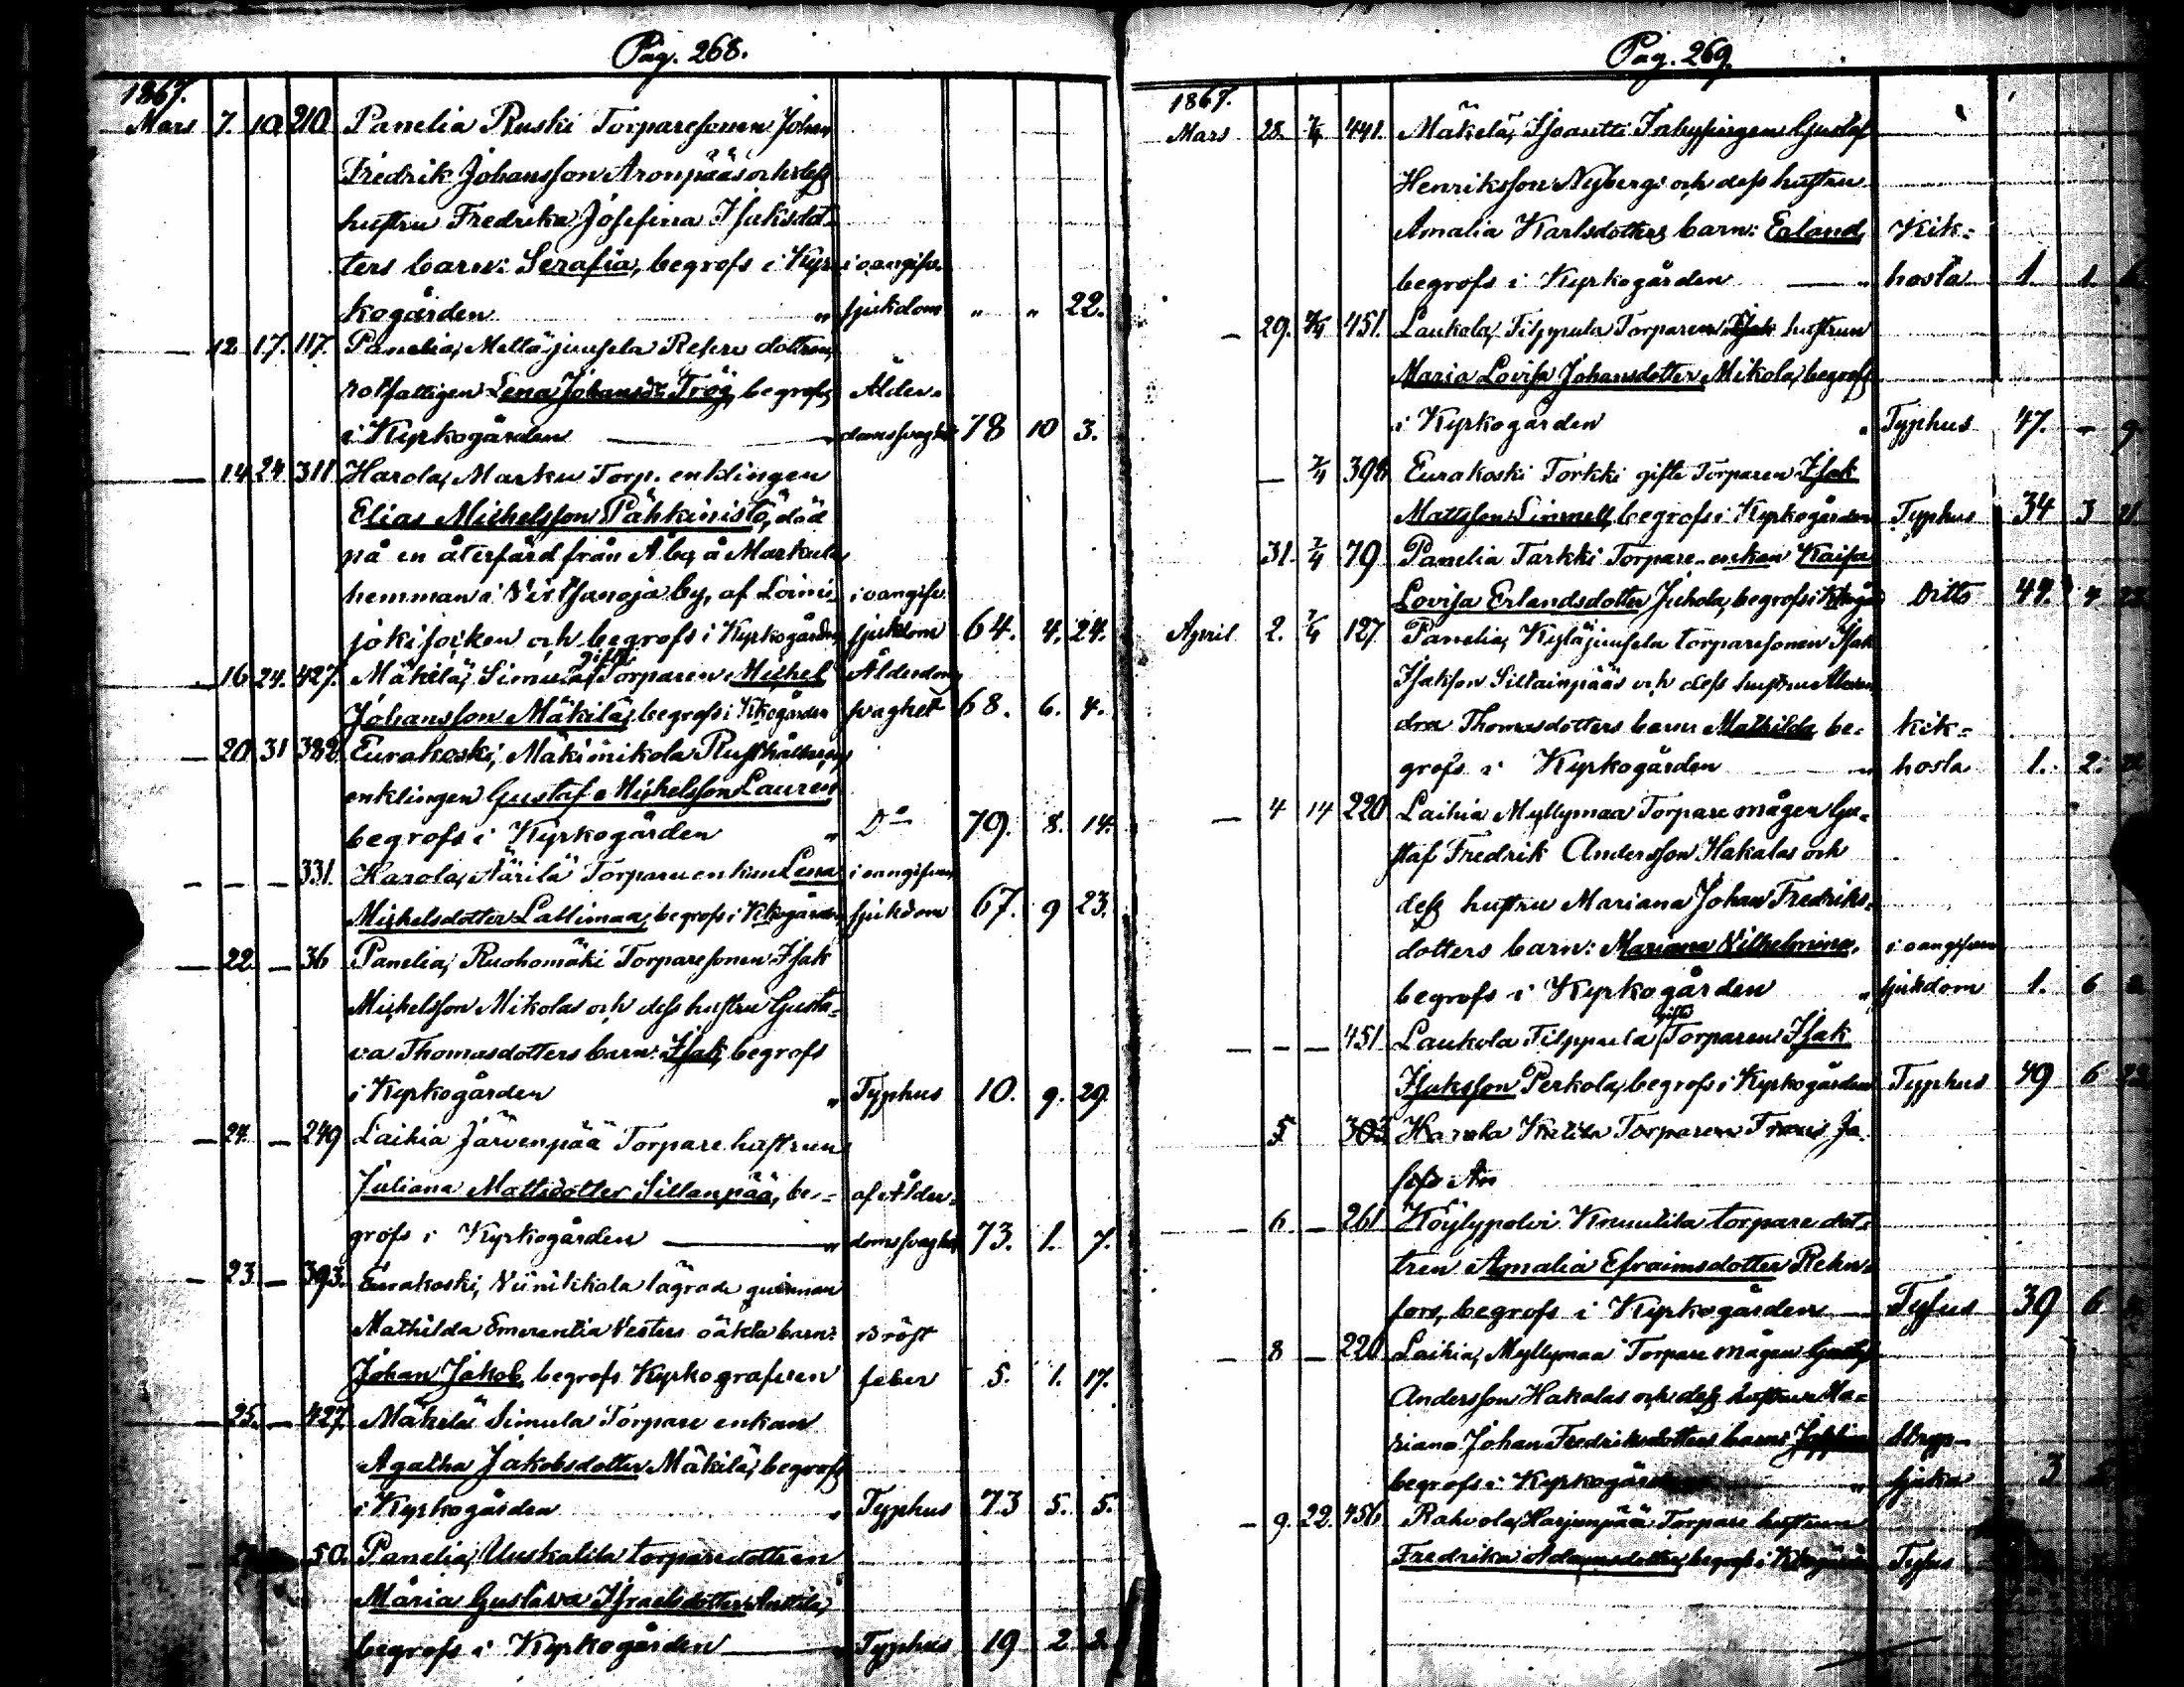 Pag. 268.
1867.
Mars 7. 10. 210 Panelia Ruski Torparesonen Johan
Fredrik Johansson Aronpääs och dess
hustru Fredrika Josefina Isaksdot-
ters barn: Serafia, begrofs i Kyr- i oangifv.
kogården " sjukdom " " 22.
— 12. 17. 117. Panelia, Mellä
rotfattigen Lena Johansdr Trög, begrofs Ålder-
i Kyrkogården — domssvaghet 78 10 3.
— 14 24 311 Harola, Marku Torp. enklingen
Elias Michelsson Pähkinistö, död
på en återfärd från Åbo, å Markula
hemman i Virtsanoja by, af Loimi- i oangifv.
joki socken och begrofs i Kyrkogården sjukdom 64. 4. 24.
— 16 24. 427. Mäkilä, Simula, gifte Torparen Michel Ålderdoms
Johansson Mäkilä, begrofs i Kkogården svaghet 68. 6. 4.
— 20 31 382 Eurakoski, Mäkimikola Rusthållare
enklingen Gustaf Michelsson Lauren
begrofs i Kyrkogården " Do 79. 8. 14.
— — — 331. Harola, Äärilä Torpareenkan Lena i oangifven
Michelsdotter Lallimaa, begrofs i Kkogården sjukdom 67. 9 23.
— 22 — 36 Panelia, Ruohomäki Torparesonen Isak
Michelsson Mikolas och dess hustru Gusta-
va Thomasdotters barn: Isak, begrofs
i Kyrkogården " Typhus 10. 9. 29.
— 24. — 249 Laihia Järvenpää Torpare hustrun
Juliana Mattsdotter Sillanpää, be- af Ålder-
grofs i Kyrkogården — domssvaghet 73. 1. 7.
— 23. — 393. Eurakoski, Viinikkala lägrade quinnan
Mathilda Emerentia Vesters oäkta barn: Bröst
Johan Jakob, begrofs Kyrkografven feber 5. 1. 17.
— 25. — 427. Mäkelä Simula Torpare enkan
Agatha Jakobsdotter Mäkilä, begrofs
i Kyrkogården " Typhus 73 5. 5.
50. Panelia, Uuskalila torparedottren
Maria Gustava Israelsdotter Anttila,
begrofs i Kyrkogården — Typhus 19 2
Pag. 269.
1867.
Mars 28. 7/4 441. Mäkelä, Isoantti Inhysingen Gustaf
Henriksson Nybergs och dess hustru
Amalia Karlsdotters barn: Erland, Kik-
begrofs i Kyrkogården — " hosta 1. 1.
— 29. 7/4 451. Laukola, Filppula Torparen Isak hustrun
Maria Lovisa Johansdotter Mikola, begrofs
i Kyrkogården " Typhus 47. - 9
— 7/4 398 Eurakoski Torkki gifte Torparen Isak
Mattsson Simnell, begrofs i Kyrkogården Typhus 34 3 21.
31. 7/4 79 Panelia Tarkki Torpare-enkan Kaisa
Lovisa Erlandsdotter Juhola, begrofs i Ditto 4
April 2. 7/4 127 Panelia, Kyläjuusela torparesonen Isak
Isaksson Siltainpääs och dess hustru Alexan-
dra Thomasdotters barn Mathilda be- kik-
grofs i Kyrkogården — hosta 1. 2.
— 4 14 220 Laihia Myllymaa Torpare mågen Gu-
staf Fredrik Andersson Hakalas och
dess hustru Mariana Johan Fredriks-
dotters barn: Mariana Vilhelmina, i oangifven
begrofs i Kyrkogården " sjukdom 1. 6
— — — 451 Laukola Filppula gifte Torparen Isak
Isaksson Perkola, begrofs i Kyrkogården Typhus 49 6 22
5 303 Harola Kalila Torparen Frans Jo
— 6. — 261 Höylypolvi Knuutila torpare dot-
tren Amalia Efraimsdotter Rehn-
fors, begrofs i Kyrkogården — Tyfus 39 6
— 8 — 220 Laihia, Myllymaa Torpare mågen Gustaf
Andersson Hakalas och dess hustru Ma-
riana Johan Fredriksdotters barn Stryp-
begrofs i Kyrkogården " sjuka 3
— 9. 22. 456. Rahvola, Harjunpää Torpare hustrun
Fredrika Adamsdotter, begrofs i Kkogården Tyfus